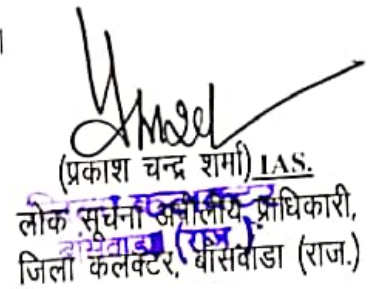 (प्रकाश चन्द्र शर्मा) IAS.
लोक सूचना अपीलीय प्राधिकारी,
जिला कलक्टर, बांसवाडा (राज.)
बांसवाड़ा (राज.)